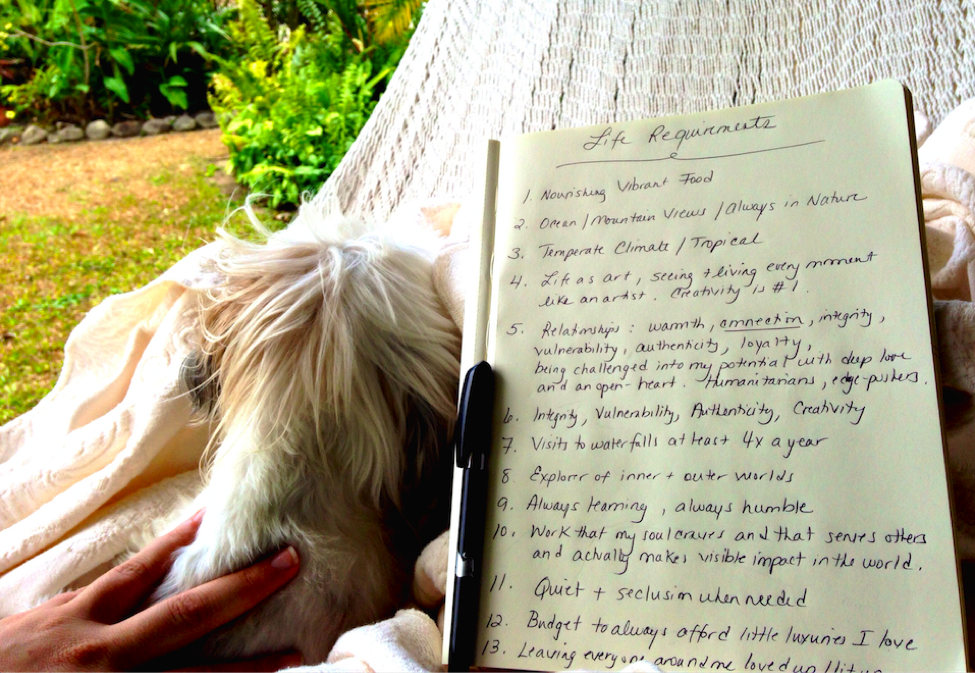 Life Requirments
1. Nourishing Vibrant Food
2. Ocean / Mountain Views / Always in Nature
3. Temperate Climate / Tropical
4. Life as art, seeing + living every moment
like an artist. Creativity is #1.
5. Relationships: warmth, connection, integrity,
vulnerability, authenticity, loyalty,
being challenged into my potential with deep love
and an open-heart. Humanitarians, edge-pushers.
6. Integrity, Vulnerability, Authenticity, Creativity
7. Visits to waterfalls at least 4x a year
8. Explorer of inner + outer worlds
9. Always learning, always humble
10. Work that my soul craves and that serves others
and actually makes visible impact in the world.
11. Quiet + seclusion when needed
12. Budget to always afford little luxuries I love
13. Leaving everyone around me loved up / lit up